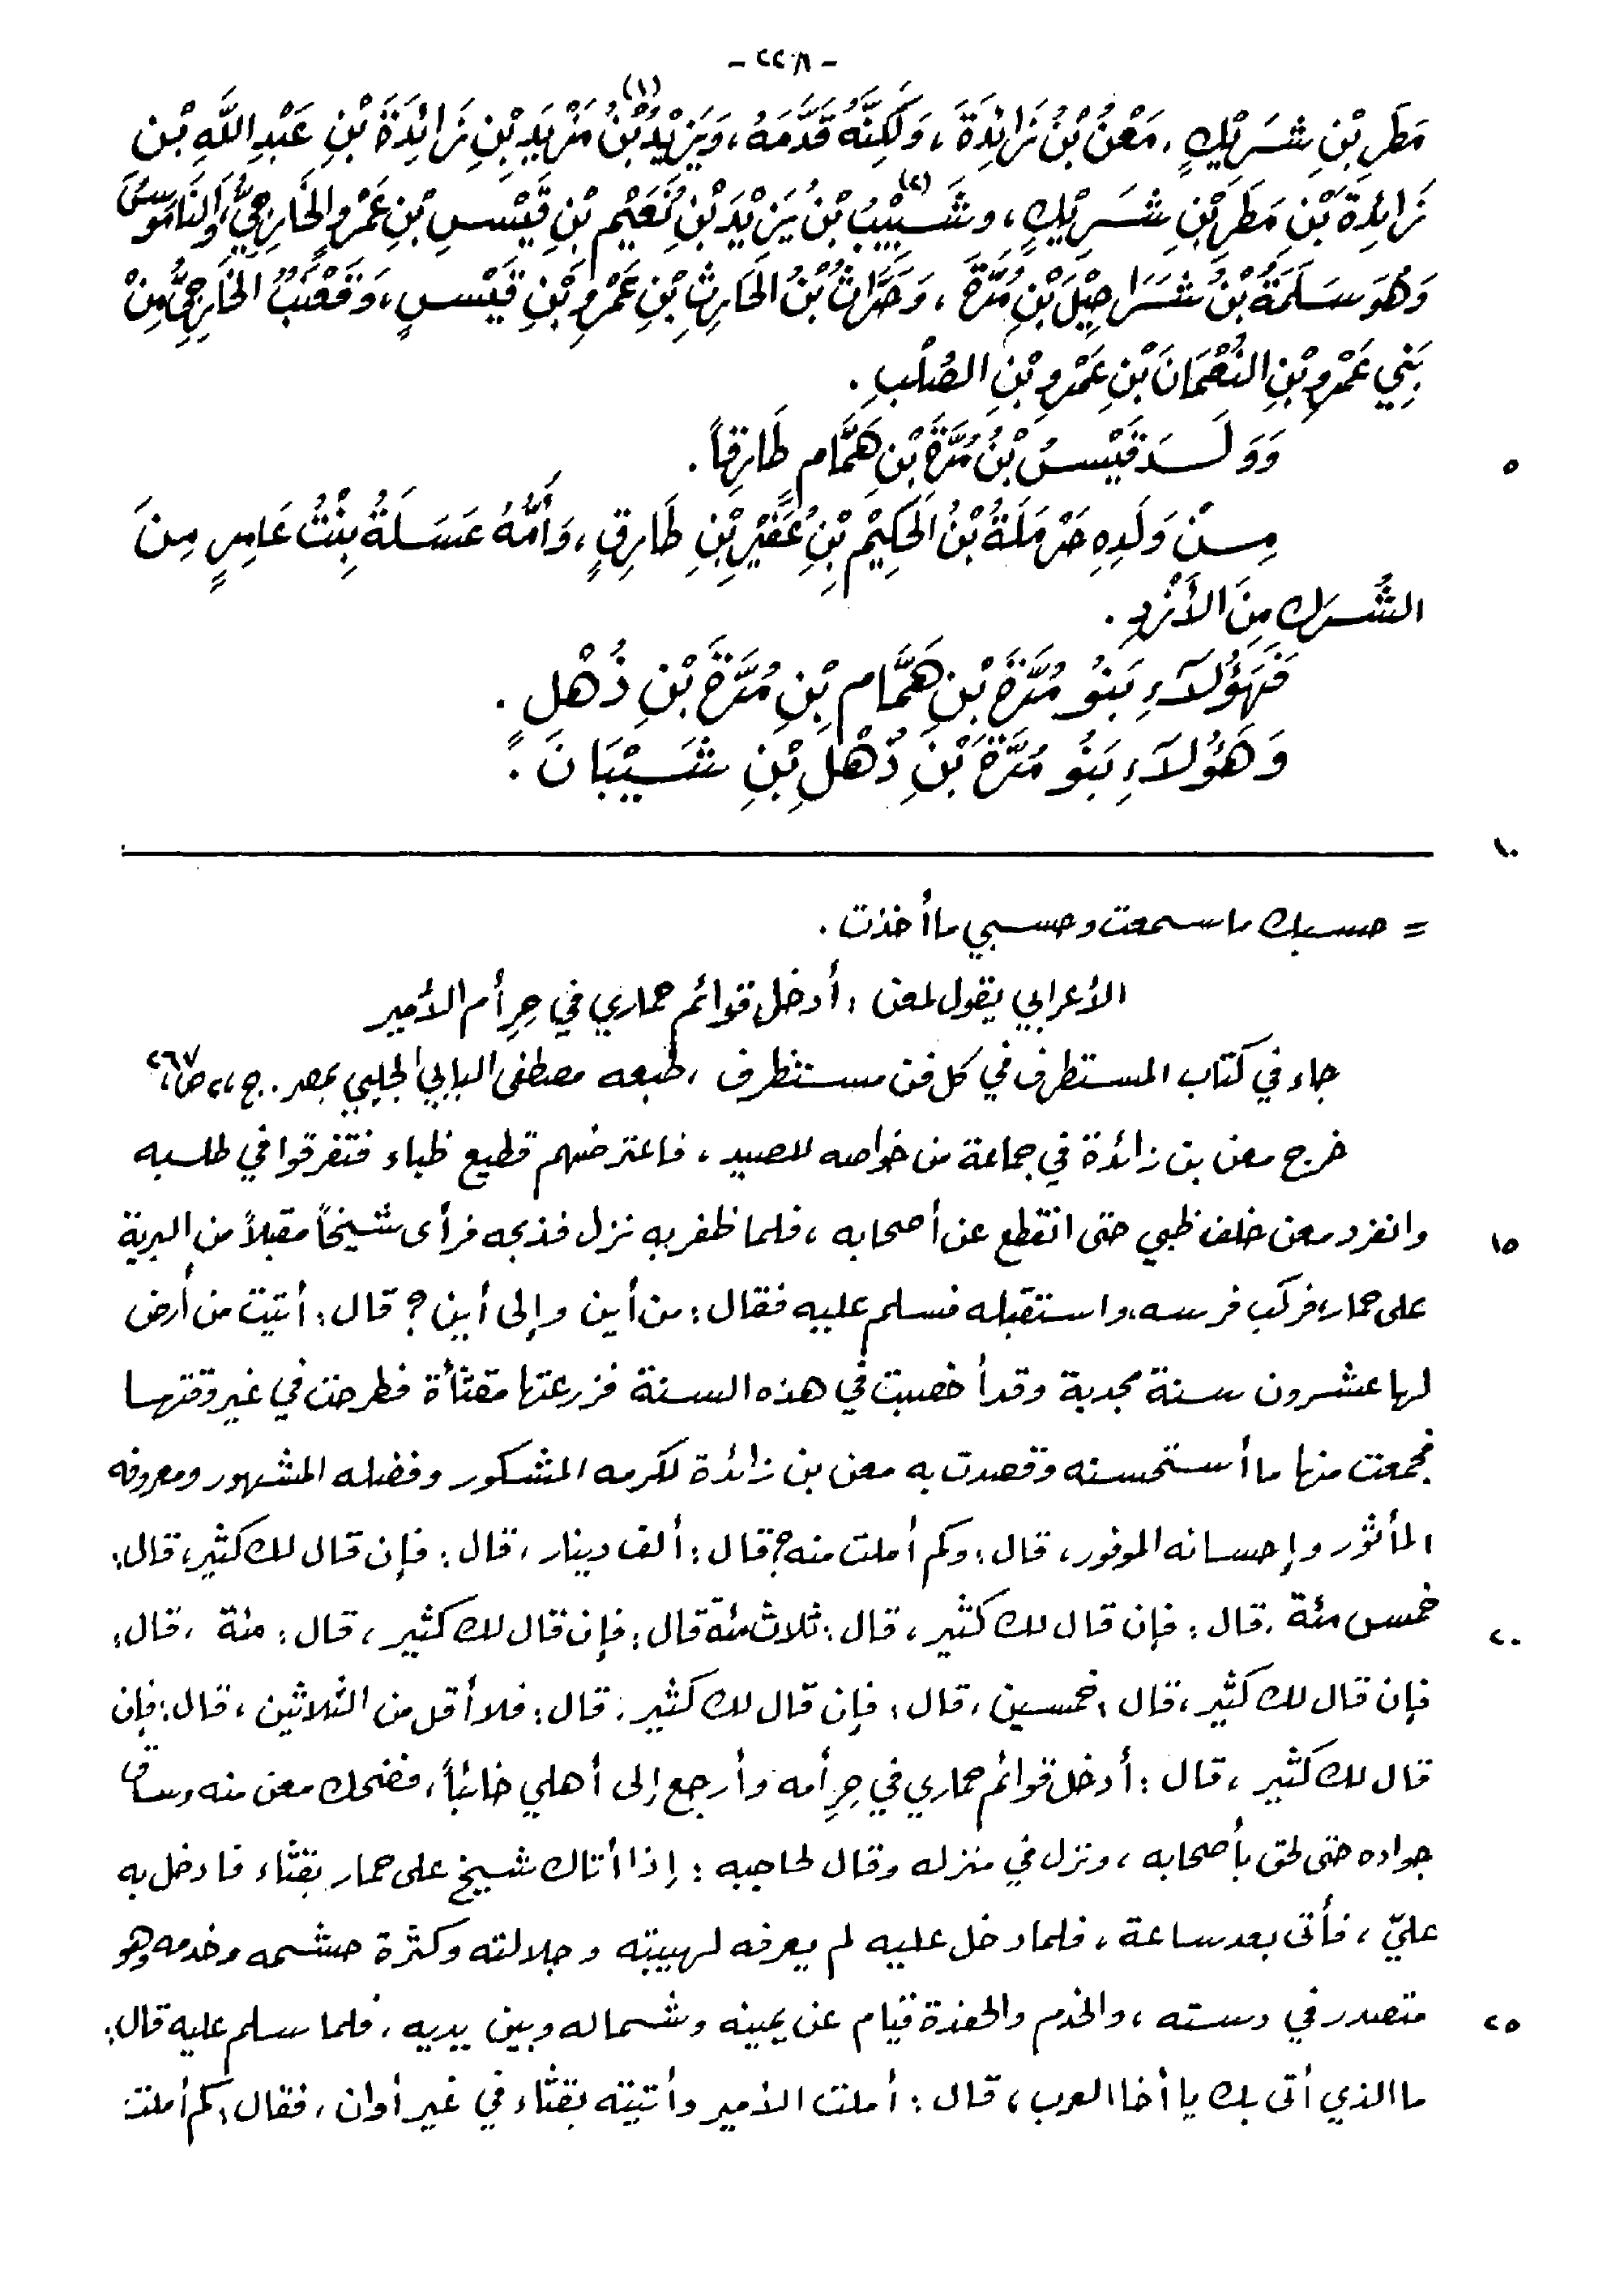 - ٢٢٨ -
مَطَرِ بْنِ شَرِيْكٍ، مَعْنُ بْنُ زَائِدَةَ، وَلَكِنَّهُ قَدَّمَهُ، وَيَزِيْدُ بْنُ مَزْيَدِ(١) بْنِ زَائِدَةَ بْنِ عَبْدِ اللَّهِ بْنِ
زَائِدَةَ بْنِ مَطَرِ بْنِ شَرِيْكٍ، وشَبِيْبُ(٢) بْنُ يَزِيْدَ بْنِ نُعَيْمِ بْنِ قَيْسِ بْنِ عَمْرٍو الخَارِجِيُّ، وَالنَّامُوسُ
وَهُوَ سَلَمَةُ بْنُ شَرَاحِيْلَ بْنِ مُرَّةَ، وَحَرَّاثُ بْنُ الحَارِثِ بْنِ عَمْرِو بْنِ قَيْسٍ، وَقَعْنَبُ الخَارِجِيُّ مِنْ
بَنِي عَمْرِو بْنِ النُّعْمَانَ بْنِ عَمْرِو بْنِ الصُّلْبِ.
٥ وَوَلَدَ قَيْسُ بْنُ مُرَّةَ بْنِ هَمَّامٍ طَارِقاً.
مِنْ وَلَدِهِ حَرْمَلَةُ بْنُ الحَكِيْمِ بْنِ عُفَيْرِ بْنِ طَارِقٍ، وَأُمُّهُ عَسَلَةُ بِنْتُ عَامِرٍ مِنَ
الشُّرَكِ مِنَ الأَزْدِ.
فَهَؤُلَاَءِ بَنُو مُرَّةَ بْنِ هَمَّامِ بْنِ مُرَّةَ بْنِ ذُهْلٍ.
وَهَؤُلَاَءِ بَنُو مُرَّةَ بْنِ ذُهْلِ بْنِ شَيْبَانَ.
١٠
= حسبك ما سمعت وحسبي ما أخذت.
الأعرابي يقول لمعن: أدخل قوائم حماري في حِرِ أم الأمير
جاء في كتاب المستطرف في كل فن مستظرف، طبعه مصطفى البابي الحلبي بمصر. ج، ٢، ص، ٢٦٧
خرج معن بن زائدة في جماعة من خواصه للصيد، فاعترضهم قطيع ظباء فتفرقوا في طلبه
١٥ وانفرد معن خلف ظبي حتى انقطع عن أصحابه، فلما ظفر به نزل فذبحه فرأى شيخاً مقبلاً من البرية
على حمار، فركب فرسه، واستقبله فسلم عليه فقال: من أين وإلى أين؟ قال: أتيت من أرض
لها عشرون سنة مجدبة وقد أخصبت في هذه السنة فزرعتها مقثأة فطرحت في غير وقتها
فجمعت منها ما أستحسنه وقصدت به معن بن زائدة لكرمه المشكور وفضله المشهور ومعروفه
المأثور وإحسانه الموفور، قال: وكم أملت منه؟ قال: ألف دينار، قال: فإن قال لك كثير، قال:
٢٠ خمس مئة. قال: فإن قال لك كثير، قال: ثلاث مئة قال: فإن قال لك كثير، قال: مئة، قال:
فإن قال لك كثير، قال: خمسين، قال: فإن قال لك كثير. قال: فلا أقل من الثلاثين، قال: فإن
قال لك كثير، قال: أدخل قوائم حماري في حِرِ أمه وأرجع إلى أهلي خائباً، فضحك معن منه وساق
جواده حتى لحق بأصحابه، ونزل في منزله وقال لحاجبه: إذا أتاك شيخ على حمار بقثاء فادخل به
عليّ، فأتى بعد ساعة، فلما دخل عليه لم يعرفه لهيبته وجلالته وكثرة حشمه وخدمه وهو
٢٥ متصدر في دسته، والخدم والحفدة قيام عن يمينه وشماله وبين يديه، فلما سلم عليه قال:
ما الذي أتى بك يا أخا العرب، قال: أملت الأمير وأتيته بقثاء في غير أوان، فقال: كم أملت